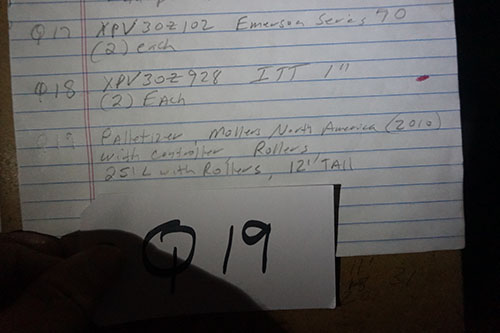 Q17 XPV30Z102 Emerson Series 70
(2) each
Q18 XPV30Z928 ITT 1"
(2) EAch
Q19 Palletizer, Mollers North America (2010)
with controller Rollers
25' L with Rollers, 12' TAll
Q19